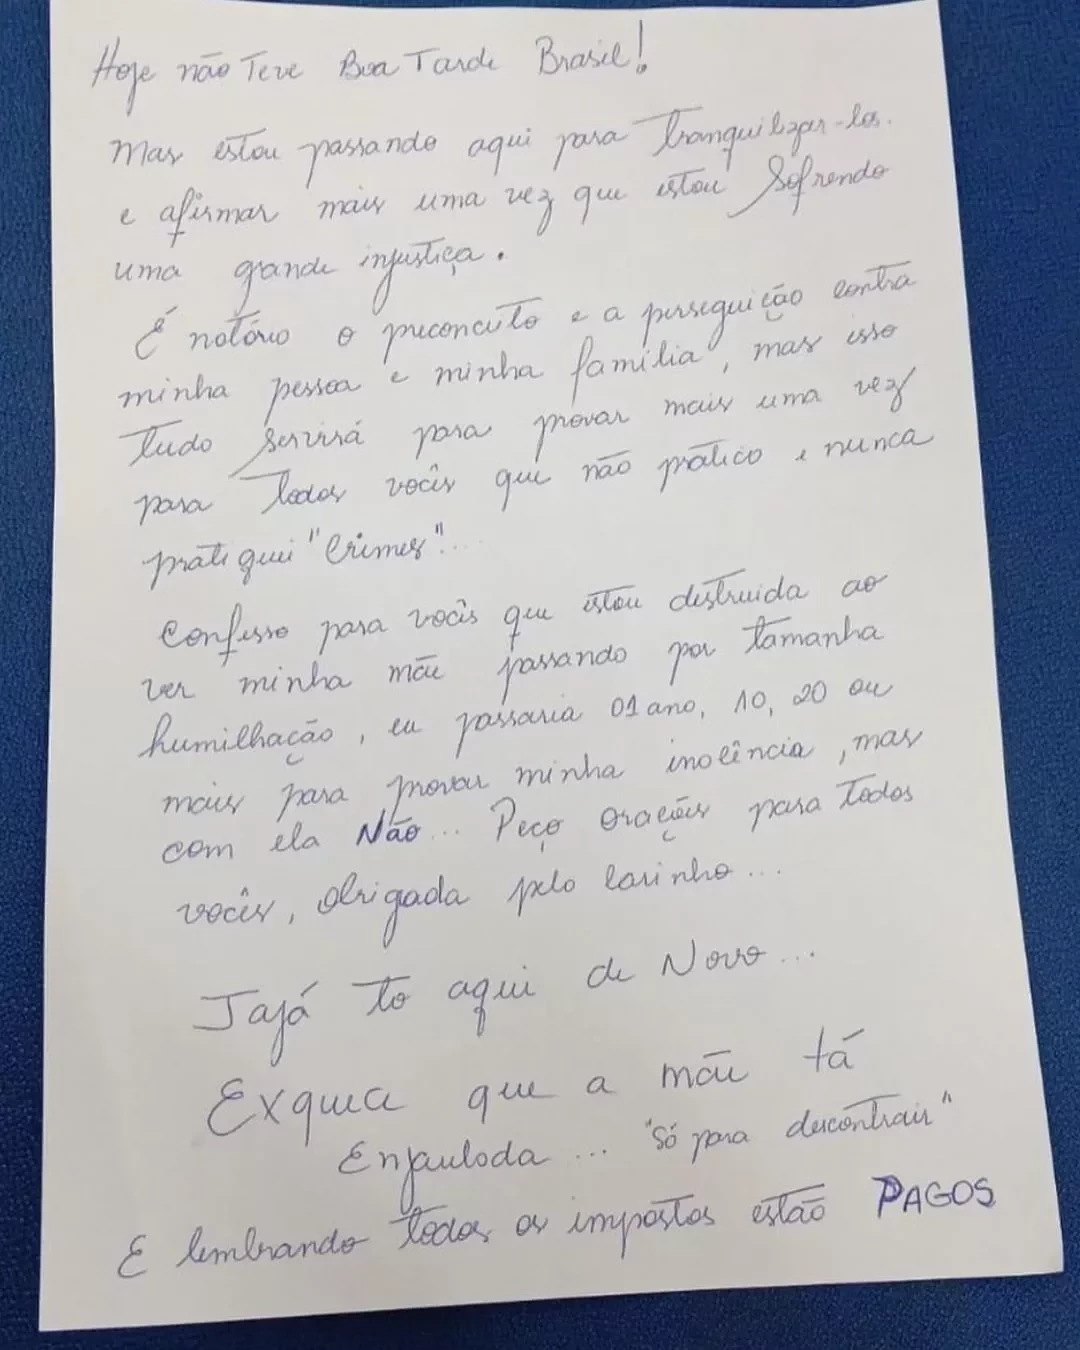 Hoje não Teve Boa Tarde Brasil!
Mas estou passando aqui para Tranquilizar-los.
e afirmar mais uma vez que estou Sofrendo
uma grande injustiça.
É notório o preconceito e a perseguição contra
minha pessoa e minha família, mas isso
Tudo servirá para provar mais uma vez
para Todos vocês que não pratico e nunca
pratiquei "Crimes"...
Confesso para vocês que estou destruida ao
ver minha mãe passando por tamanha
humilhação, eu passaria 01 ano, 10, 20 ou
mais para provar minha inocência, mas
com ela Não... Peço orações para Todos
vocês, Obrigada pelo Carinho...
Jajá to aqui de Novo...
Exquea que a mãe tá
Enjaulada... "Só para descontrair"
E lembrando todos os impostos estão PAGOS